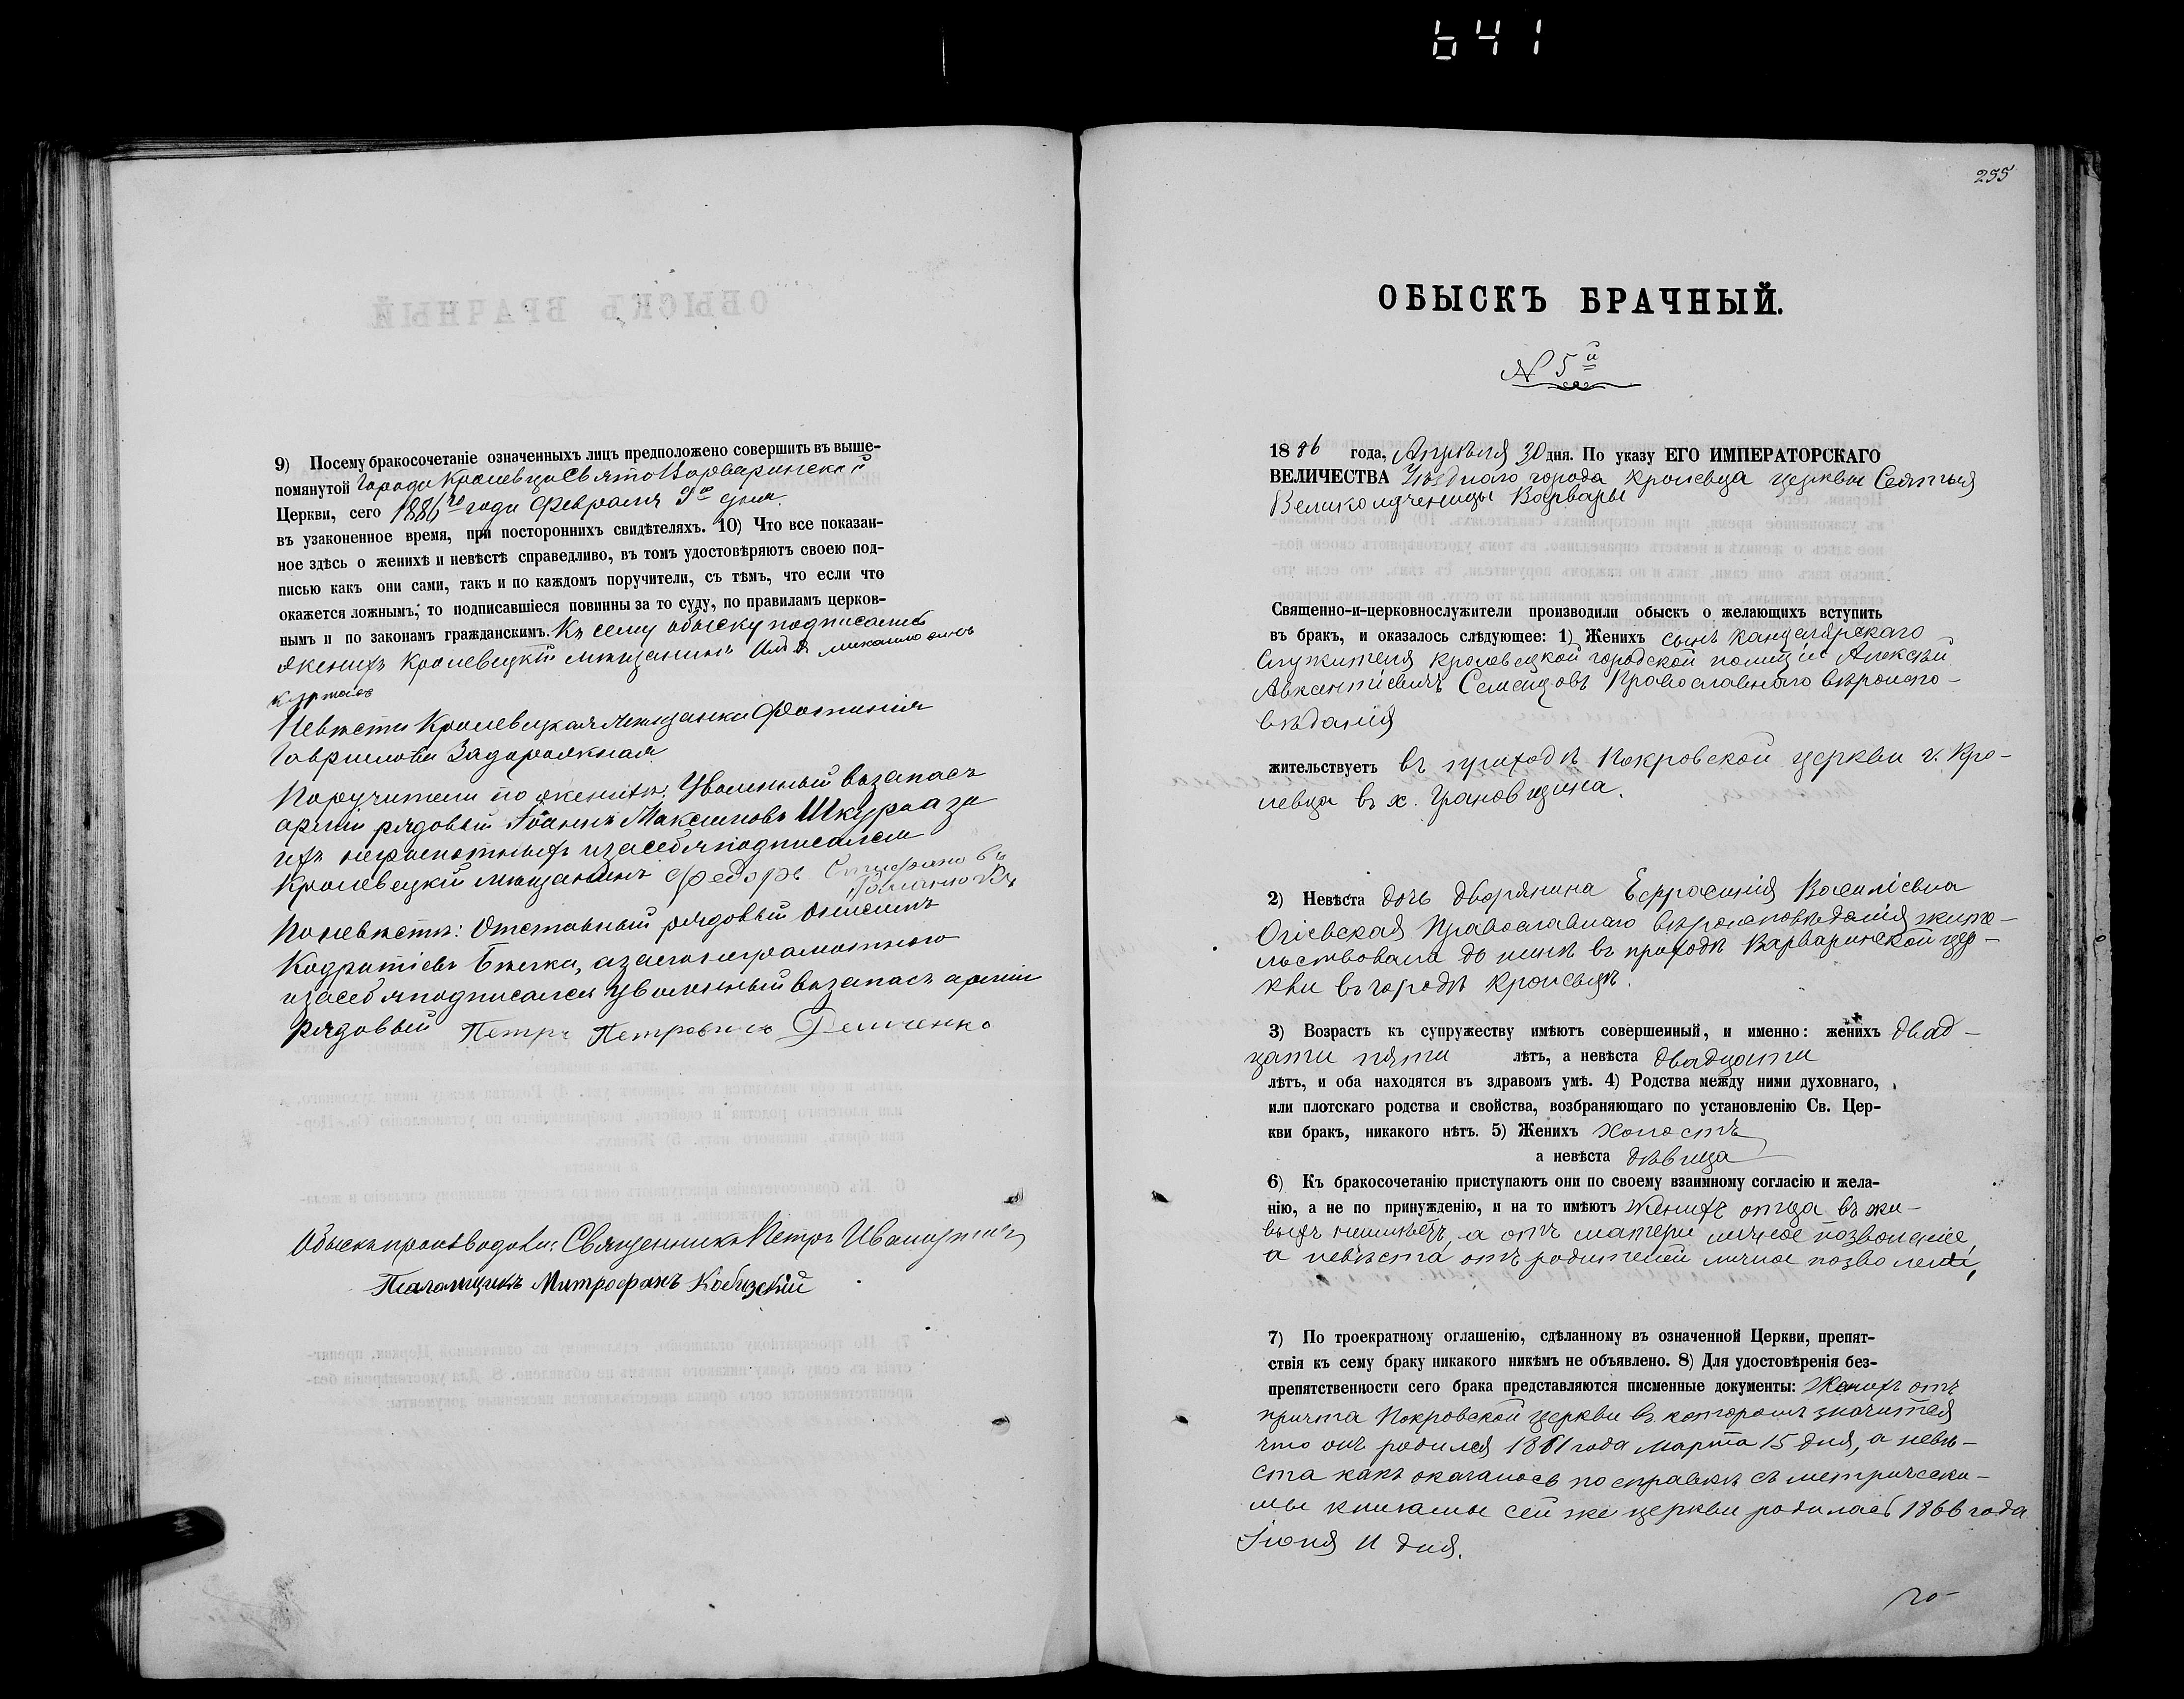 641
9) Посему бракосочетаніе означенныхъ лицъ предположено совершить въ выше-
помянутой Города Кролевца СвятоВарваринской
Церкви, сего 1886го года Февраля 9го дня
въ узаконенное время, при постороннихъ свидѣтеляхъ. 10) Что все показан-
ное здѣсь о женихѣ и невѣстѣ справедливо, въ томъ удостовѣряютъ своею под-
писью какъ они сами, такъ и по каждомъ поручители, съ тѣмъ, что если что
окажется ложнымъ, то подписавшіеся повинны за то суду, по правиламъ церков-
нымъ и по законамъ гражданскимъ. Къ сему обыску подписались
Женихъ Кролевецкій мѣщанинъ
Невѣста Кролевецкая мѣщанка Фотинія
Гаврилова Задорожная
Поручители по женихѣ: Уволенный взапасъ
арміи рядовый Іоаннъ Максимовъ Шкура а за
ихъ неграмотныхъ и засебя подписался
Кролевецкій мѣщанинъ Федоръ
По невѣстѣ: Отставный рядовый
Кодратіевъ а за его неграмотного
и засебя подписался уволенный взапасъ арміи
рядовый Петръ Петровичъ Демченко
Обыскъ производили: Священникъ Петръ
Псаломщикъ Митрофанъ Кобизскій
255
ОБЫСКЪ БРАЧНЫЙ.
N 5й
1886 года, Апрѣля 30 дня. По указу ЕГО ИМПЕРАТОРСКАГО
ВЕЛИЧЕСТВА Уѣзднаго города Кролевца церкви Святыя
Великомученицы Варвары
Священно-и-церковнослужители производили обыскъ о желающихъ вступить
въ бракъ, и оказалось слѣдующее: 1) Женихъ сынъ канцелярскаго
служителя Кролевецкой городской полиціи Алексѣй
Авксентіевичъ Семенцовъ Православнаго вѣроиспо-
вѣданія
жительствуетъ въ приходѣ Покровской церкви г. Кро-
левца въ х. Грановщина.
2) Невѣста дочь дворянина Ефросинія Василіевна
Огіевская Православнаго вѣроисповѣданія жите-
льствовала до нинѣ въ приходѣ Варваринской цер-
кви въ городѣ Кролевцѣ.
3) Возрастъ къ супружеству имѣютъ совершенный, и именно: женихъ двад-
цати пяти лѣтъ, а невѣста двадцати
лѣтъ, и оба находятся въ здравомъ умѣ. 4) Родства между ними духовнаго,
или плотскаго родства и свойства, возбраняющаго по установленію Св. Цер-
кви бракъ, никакого нѣтъ. 5) Женихъ холостъ
а невѣста дѣвица
6) Къ бракосочетанію приступаютъ они по своему взаимному согласію и жела-
нію, а не по принужденію, и на то имѣютъ женихъ отца въ жи-
выхъ неимѣетъ, а отъ матери личное позволеніе,
а невѣста отъ родителей личное позволеніе,
7) По троекратному оглашенію, сдѣланному въ означенной Церкви, препят-
ствія къ сему браку никакого никѣмъ не объявлено. 8) Для удостовѣренія без-
препятственности сего брака представляются писменные документы: Женихъ отъ
причта Покровской церкви въ которомъ значится
что онъ родился 1861 года марта 15 дня, а невѣ-
ста какъ оказалось по справкѣ съ метрически-
мы книгамы сей же церкви родилась 1866 года
Іюня 11 дня.